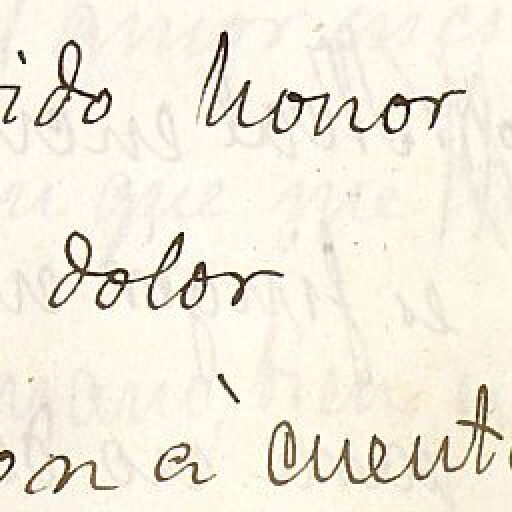 ido honor
dolor
on à cuent